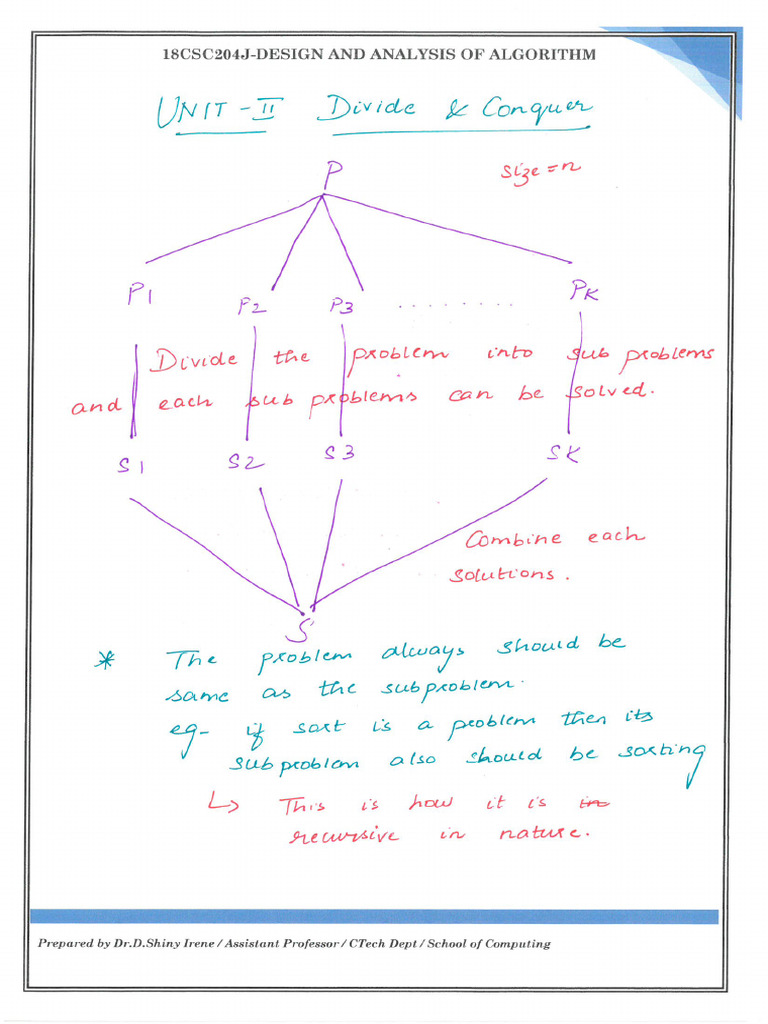 18CSC204J-DESIGN AND ANALYSIS OF ALGORITHM
UNIT - II Divide & Conquer
P
size = n
P1 P2 P3 ......... PK
Divide the problem into sub problems
and each sub problems can be solved.
S1 S2 S3 SK
Combine each
solutions.
S
* The problem always should be
same as the subproblem.
eg- if sort is a problem then its
subproblem also should be sorting
↳ This is how it is in
recursive in nature.
Prepared by Dr.D.Shiny Irene / Assistant Professor / CTech Dept / School of Computing